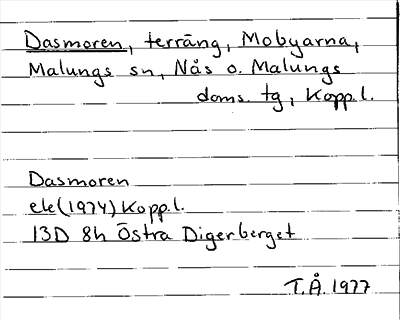 Dasmoren, terräng, Mobyarna,
Malungs sn, Nås o. Malungs
doms. tg, Kopp.l.
Dasmoren
ek(1974) Kopp.l.
13D 8h Östra Digerberget
T.Å. 1977